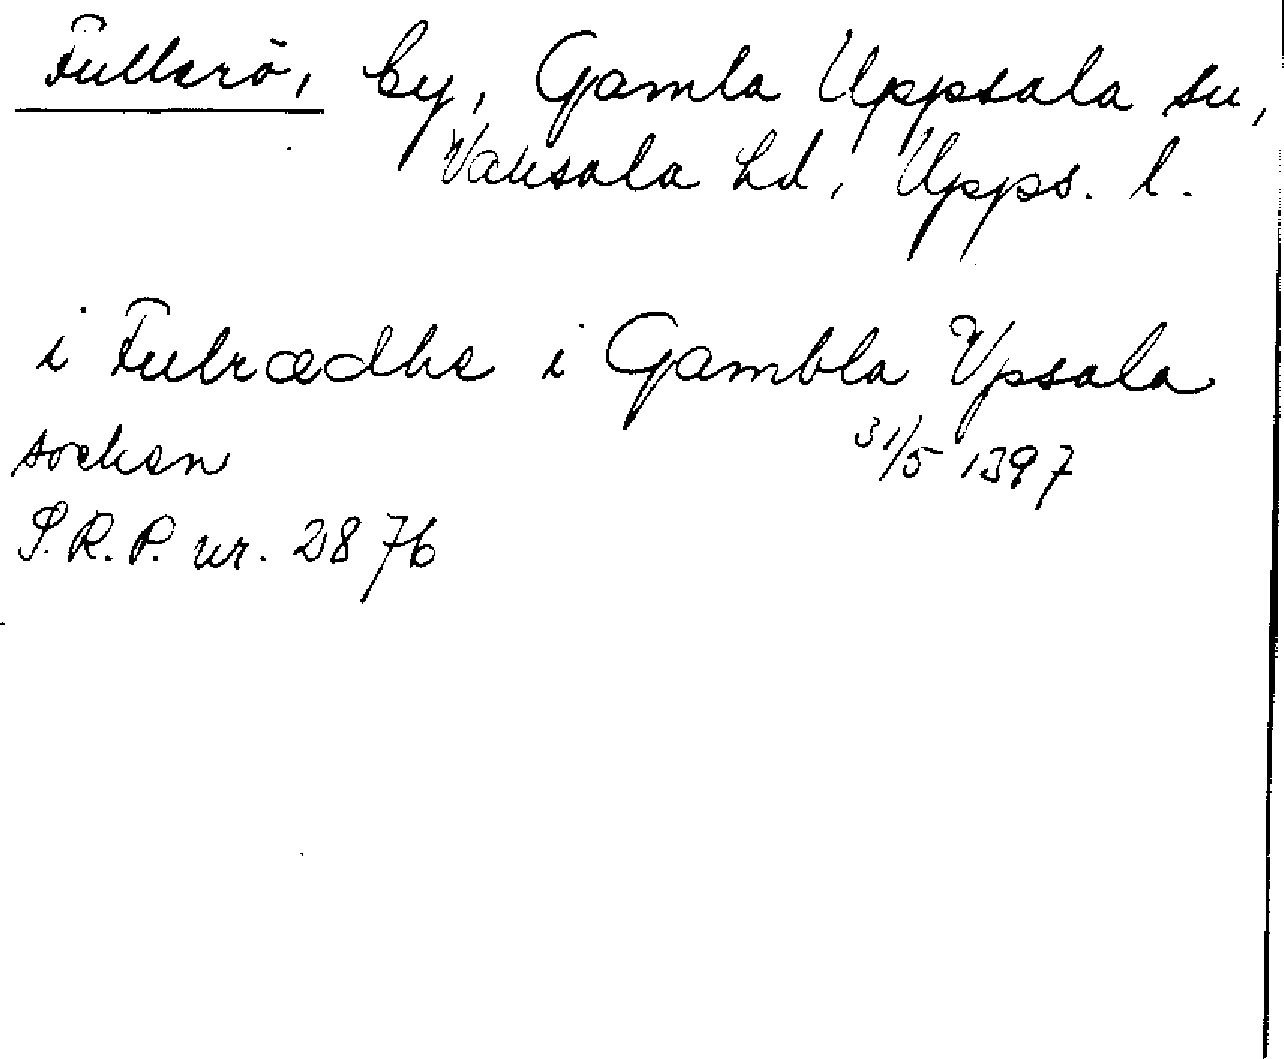 Fullerö, by, Gamla Uppsala sn,
Vaksala hd, Upps. l.
i Fulrædhe i Gambla Vpsala
sochen 31/5 1397
S.R.P. nr. 2876